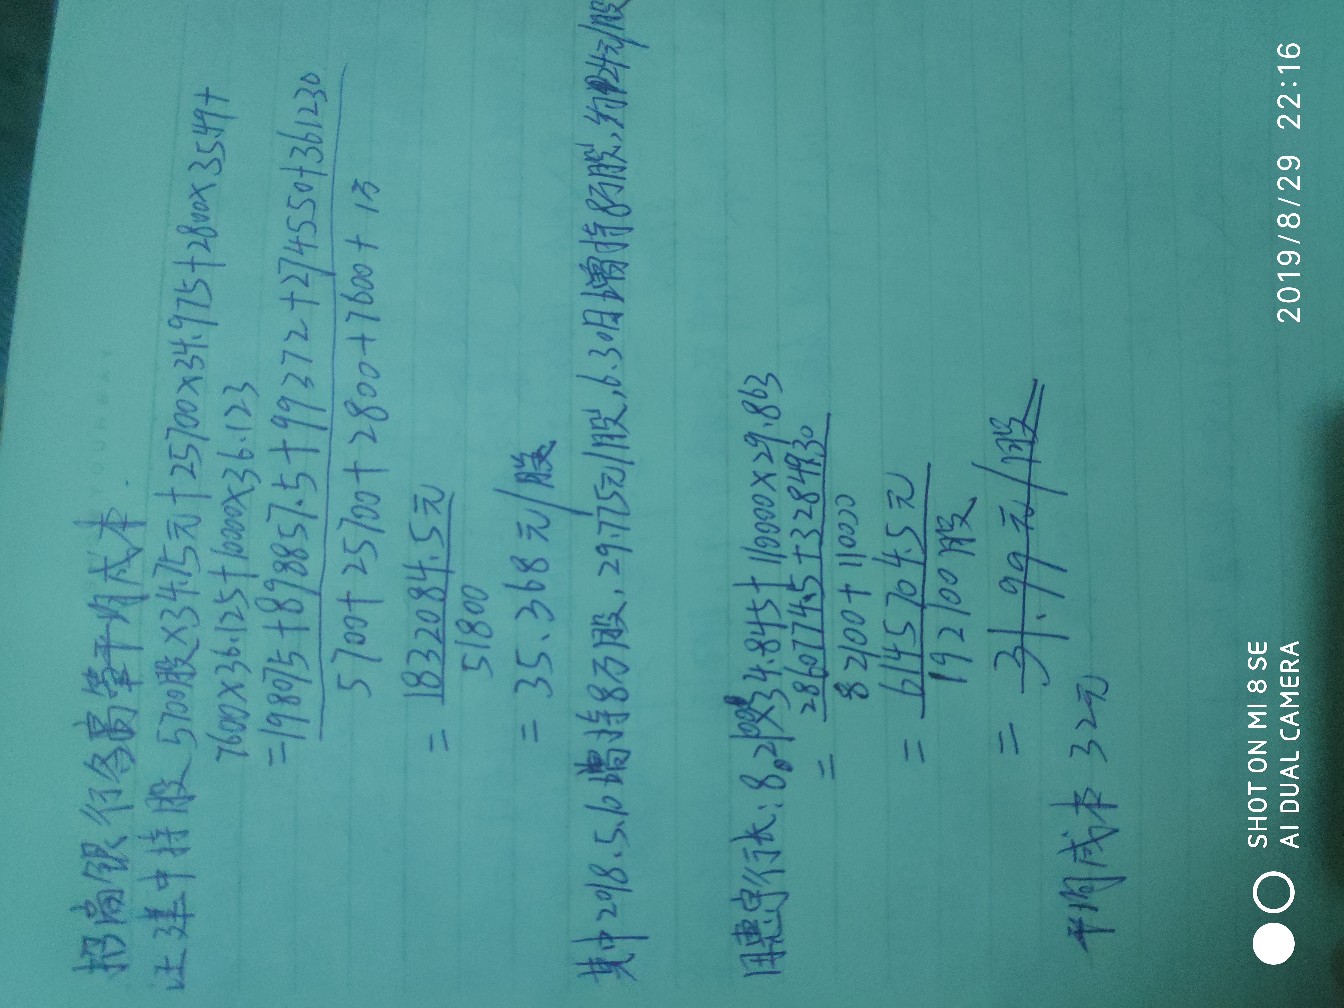 招商银行各高管平均成本
汪建中持股 5700股×34.75元+25700×34.975+2800×35.49+
7600×36.125+10000×36.123
=198075+898857.5+99372+274550+361230
5700+25700+2800+7600+1万
= 1832084.5元
51800
= 35.368元/股
其中2018.5.16增持8万股,29.775元/股,6.30日增持8万股,约24元/股
田惠宇行长:82100×34.845+110000×29.863
= 2860774.5+3284930
82100+11000
= 6145704.5元
192100股
= 31.99元/股
平均成本 32元
SHOT ON MI 8 SE
AI DUAL CAMERA
2019/8/29 22:16